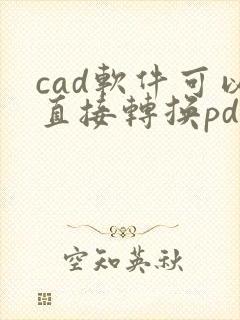 cad軟件可以
直接轉換pd
空知英秋